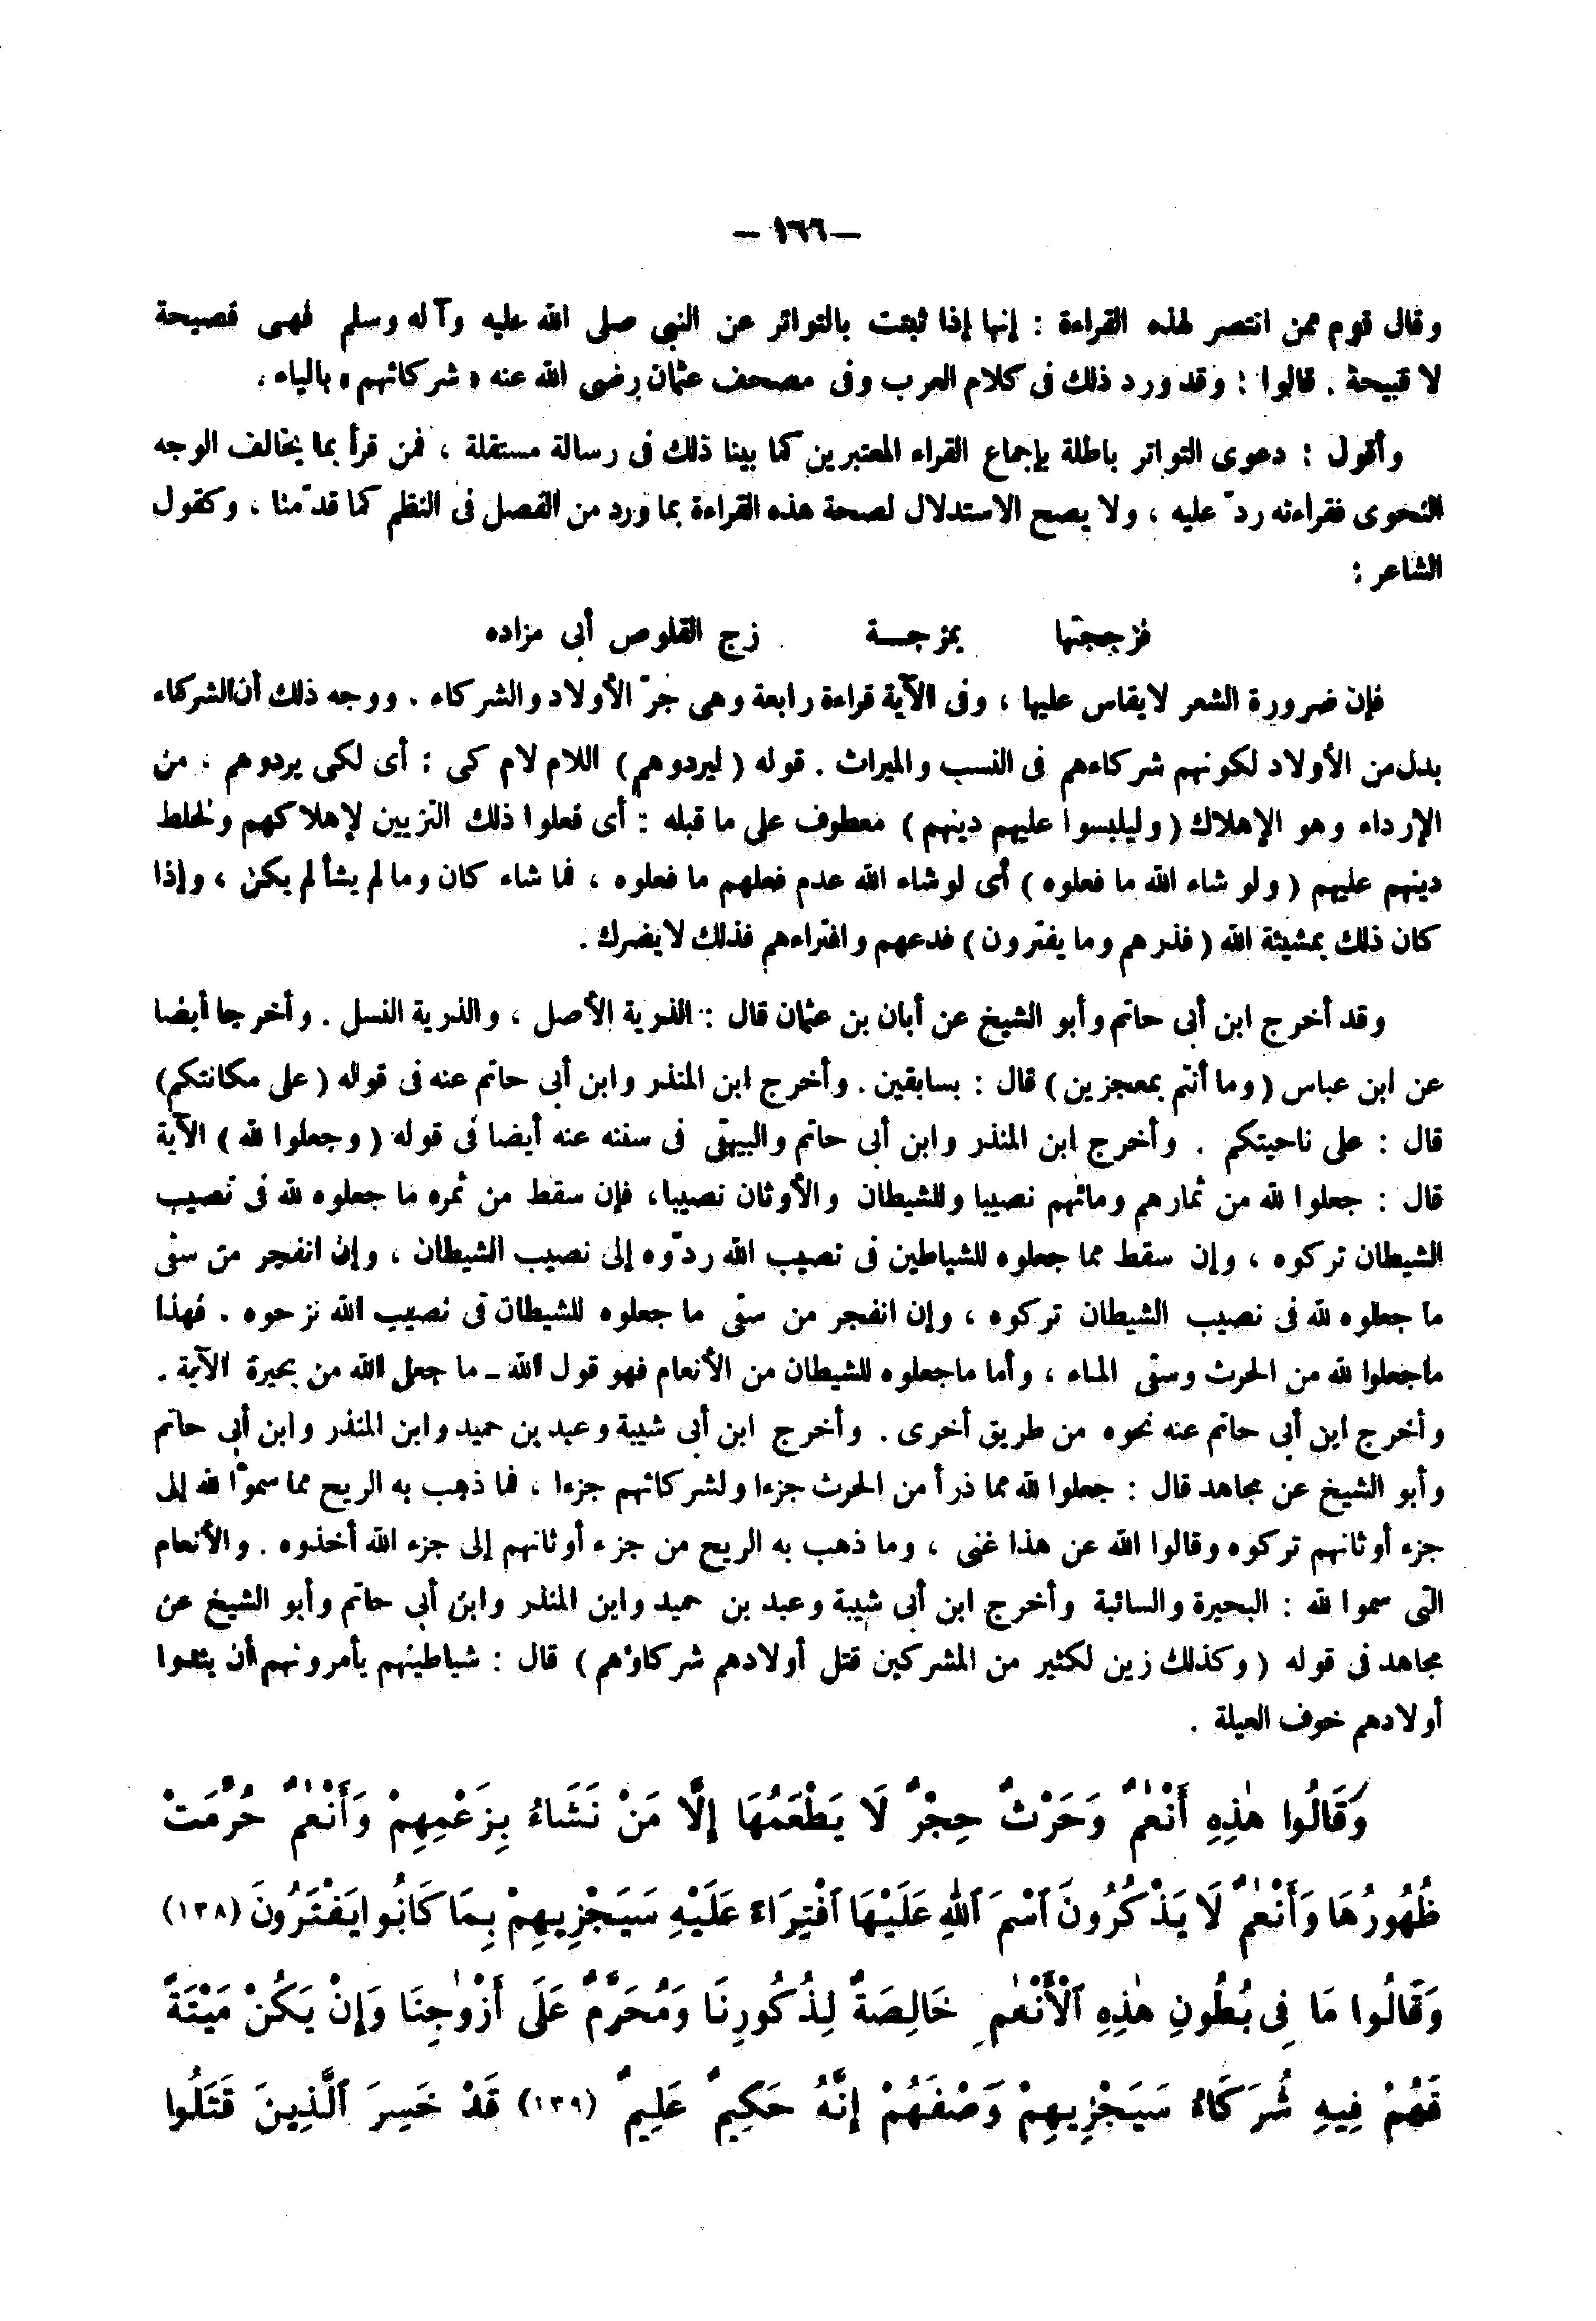 — ١٦٦ —
وقال قوم ممن انتصر لهذه القراءة : إنها إذا ثبتت بالتواتر عن النبى صلى الله عليه وآله وسلم فهى فصيحة
لا قبيحة . قالوا : وقد ورد ذلك فى كلام العرب وفى مصحف عثمان رضى الله عنه « شركائهم » بالياء .
وأقول : دعوى التواتر باطلة بإجماع القراء المعتبرين كما بينا ذلك فى رسالة مستقلة ، فمن قرأ بما يخالف الوجه
النحوى فقراءته ردّ عليه ، ولا يصح الاستدلال لصحة هذه القراءة بما ورد من الفصل فى النظم كما قدّمنا ، وكقول
الشاعر :
فزججتها بمزجــة زج القلوص أبى مزاده
فإن ضرورة الشعر لايقاس عليها ، وفى الآية قراءة رابعة وهى جرّ الأولاد والشركاء . ووجه ذلك أن الشركاء
بدل من الأولاد لكونهم شركاءهم فى النسب والميراث . قوله ( ليردوهم ) اللام لام كى : أى لكى يردوهم ، من
الإرداء وهو الإهلاك ( وليلبسوا عليهم دينهم ) معطوف على ما قبله : أى فعلوا ذلك التزيين لإهلاكهم ولخلط
دينهم عليهم ( ولو شاء الله ما فعلوه ) أى لو شاء الله عدم فعلهم ما فعلوه ، فما شاء كان وما لم يشأ لم يكن ، وإذا
كان ذلك بمشيئة الله ( فذرهم وما يفترون ) فدعهم وافتراءهم فذلك لايضرك .
وقد أخرج ابن أبى حاتم وأبو الشيخ عن أبان بن عثمان قال : الذرية الأصل ، والذرية النسل . وأخرجا أيضا
عن ابن عباس ( وما أنتم بمعجزين ) قال : بسابقين . وأخرج ابن المنذر وابن أبى حاتم عنه فى قوله ( على مكانتكم )
قال : على ناحيتكم . وأخرج ابن المنذر وابن أبى حاتم والبيهقى فى سننه عنه أيضا فى قوله ( وجعلوا لله ) الآية
قال : جعلوا لله من ثمارهم ومائهم نصيبا وللشيطان والأوثان نصيبا ، فإن سقط من ثمره ما جعلوه لله فى نصيب
الشيطان تركوه ، وإن سقط مما جعلوه للشياطين فى نصيب الله ردّوه إلى نصيب الشيطان ، وإن انفجر من سقى
ما جعلوه لله فى نصيب الشيطان تركوه ، وإن انفجر من سقى ما جعلوه للشيطان فى نصيب الله نزحوه . فهذا
ماجعلوا لله من الحرث وسقى الماء ، وأما ماجعلوه للشيطان من الأنعام فهو قول الله ـ ما جعل الله من بحيرة الآية .
وأخرج ابن أبى حاتم عنه نحوه من طريق أخرى . وأخرج ابن أبى شيبة وعبد بن حميد وابن المنذر وابن أبى حاتم
وأبو الشيخ عن مجاهد قال : جعلوا لله مما ذرأ من الحرث جزءا ولشركائهم جزءا ، فما ذهب به الريح مما سموا لله إلى
جزء أوثانهم تركوه وقالوا الله عن هذا غنى ، وما ذهب به الريح من جزء أوثانهم إلى جزء الله أخذوه . والأنعام
التى سموا لله : البحيرة والسائبة وأخرج ابن أبى شيبة وعبد بن حميد وابن المنذر وابن أبى حاتم وأبو الشيخ عن
مجاهد فى قوله ( وكذلك زين لكثير من المشركين قتل أولادهم شركاؤهم ) قال : شياطينهم يأمرونهم أن يئدوا
أولادهم خوف العيلة .
وَقَالُوا هٰذِهِ أَنْعٰمٌ وَحَرْثٌ حِجْرٌ لَا يَطْعَمُهَا إِلَّا مَنْ نَشَاءُ بِزَعْمِهِمْ وَأَنْعٰمٌ حُرِّمَتْ
ظُهُورُهَا وَأَنْعٰمٌ لَا يَذْكُرُونَ ٱسْمَ ٱللهِ عَلَيْهَا ٱفْتِرَاءً عَلَيْهِ سَيَجْزِيهِمْ بِمَا كَانُوا يَفْتَرُونَ (١٣٨)
وَقَالُوا مَا فِى بُطُونِ هٰذِهِ ٱلْأَنْعٰمِ خَالِصَةٌ لِذُكُورِنَا وَمُحَرَّمٌ عَلَى أَزْوٰجِنَا وَإِنْ يَكُنْ مَيْتَةً
فَهُمْ فِيهِ شُرَكَاءُ سَيَجْزِيهِمْ وَصْفَهُمْ إِنَّهُ حَكِيمٌ عَلِيمٌ (١٣٩) قَدْ خَسِرَ ٱلَّذِينَ قَتَلُوا